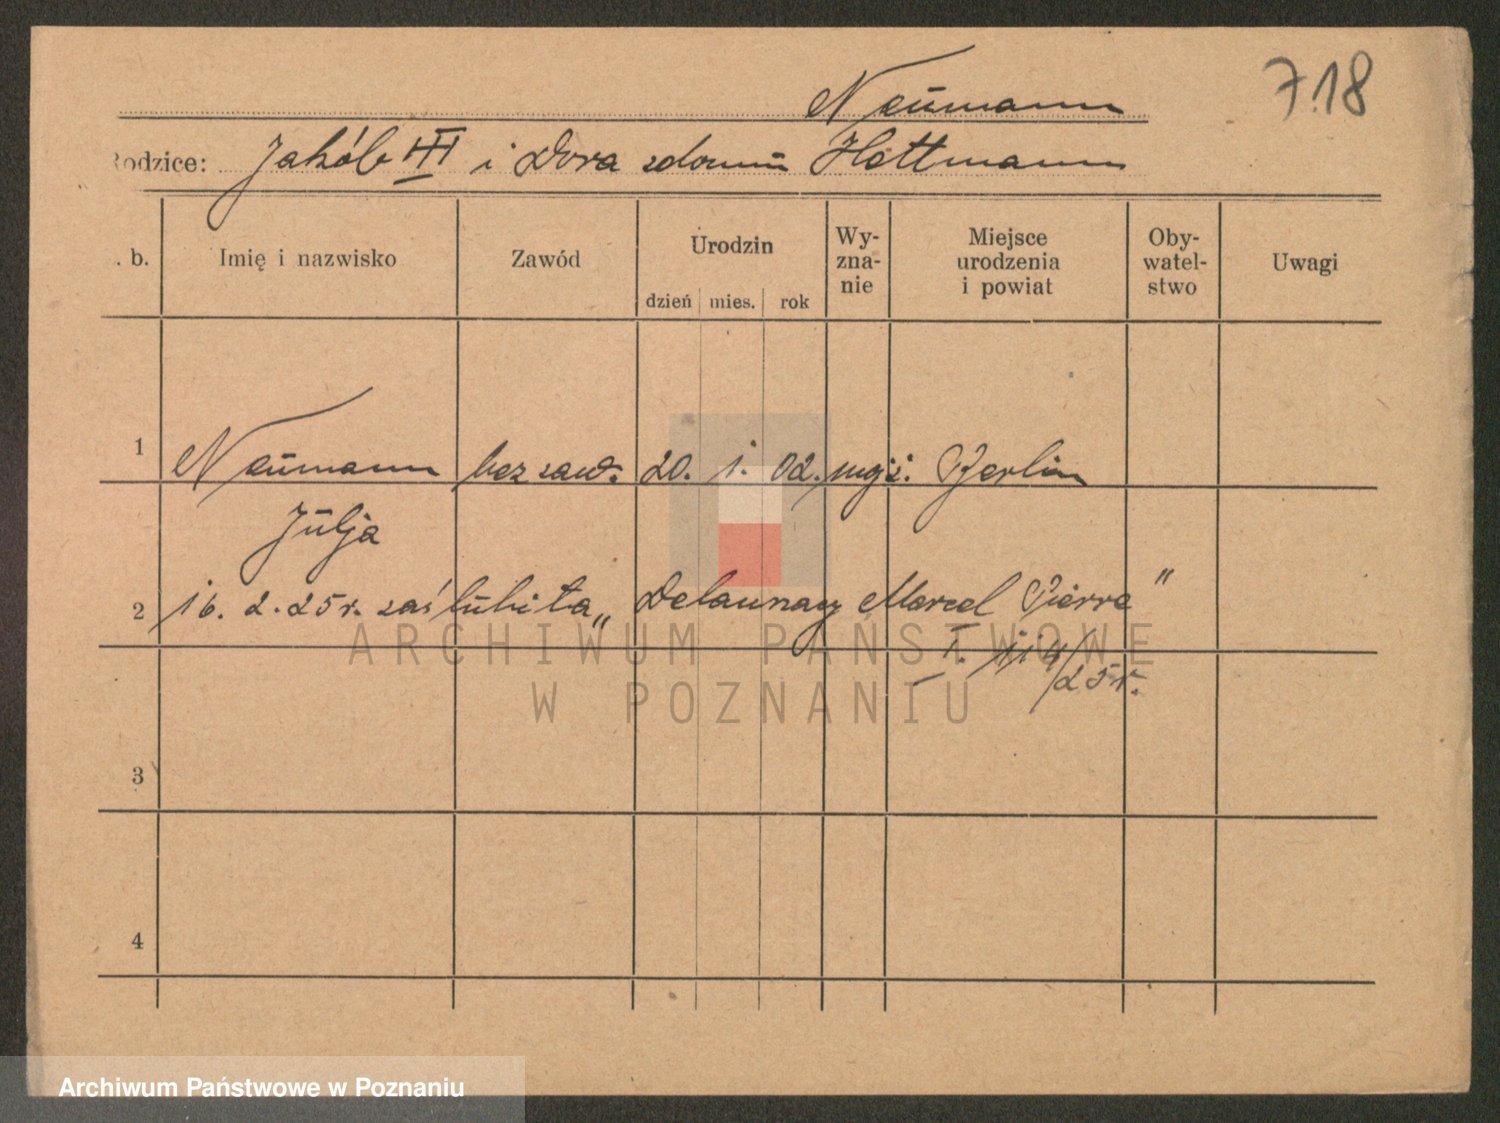 718
Neumann
Rodzice: Jakób III i Dora zdomu Hottmann
. b.
Imię i nazwisko
Zawód
Urodzin
dzień mies. rok
Wy-
zna-
nie
Miejsce
urodzenia
i powiat
Oby-
watel-
stwo
Uwagi
1 Neumann bez zaw. 20. 1. 02. mojż. Berlin
Julja
2 16. 2. 25 r. zaślubiła „Delaunay Marcel Pierre”
I. 114/25 r.
3
4
ARCHIWUM PAŃSTWOWE
W POZNANIU
Archiwum Państwowe w Poznaniu